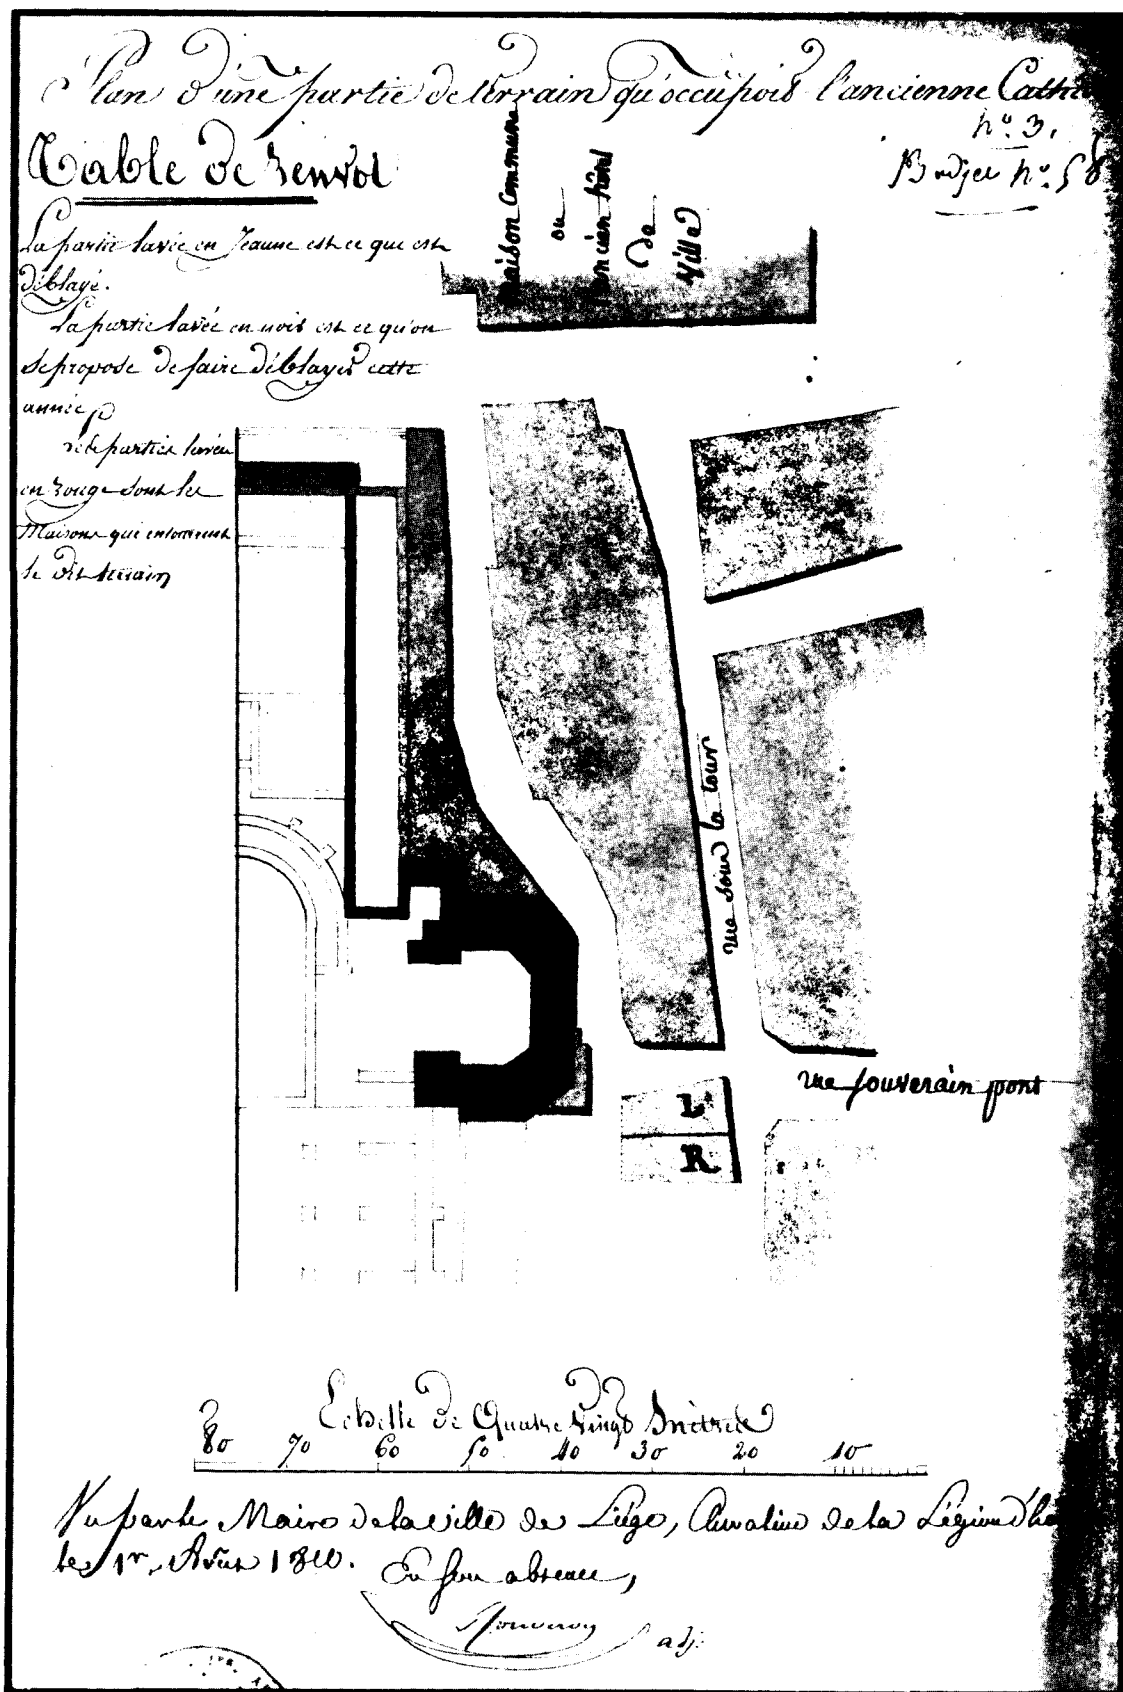 Plan d'une partie de terrain qu'occupoit l'ancienne Cath
nº. 3.
Budjet nº. 58
Table de renvoi
La partie lavée en Jeaune est ce que est
déblayé.
La partie lavée en noir est ce qu'on
se propose de faire déblayer cette
année
parties lavée
en rouge sont les
Maisons qui entourent
le dit terrain
Maison Commune
ou
ancien hôtel
de
Ville
rue sous la tour
rue souverain pont
L
R
Echelle de Quatre Vingt Mètres
80 70 60 50 40 30 20 10
Vu par le Maire de la ville de Liège, Chevalier de la Légion d'ho
le 1r. Août 1810.
En son absence,
adj.